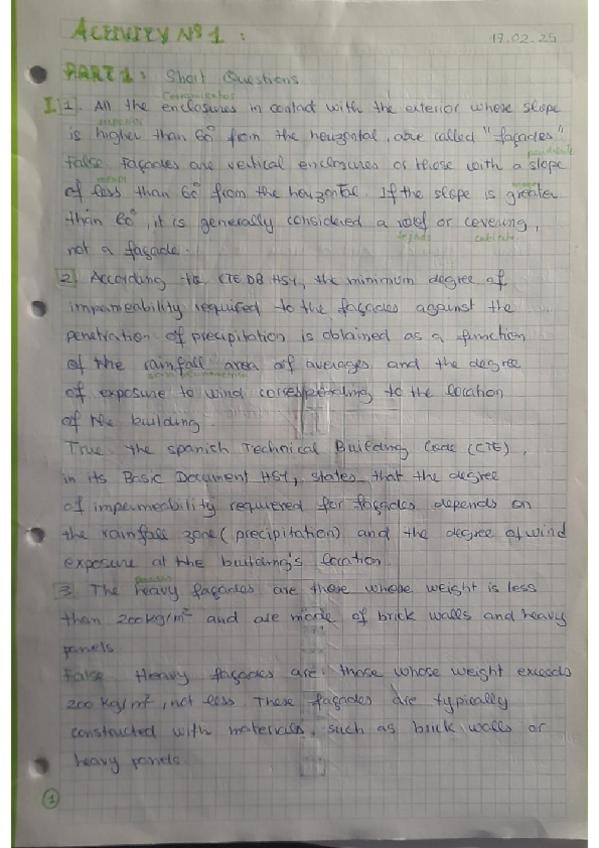 ACTIVITY Nº 1 :
17.02.25
PART 1 : Short Questions
Cerramientos
I. 1. All the enclosures in contact with the exterior whose slope
superior
is higher than 60° from the horizontal, are called "façades"
pendiente
False façades are vertical enclosures or those with a slope
menos
of less than 60° from the horizontal. If the slope is greater
than 60°, it is generally considered a roof or covering,
tejado cubierta
not a façade.
2. According to CTE DB HS1, the minimum degree of
impermeability required to the façades against the
penetration of precipitation is obtained as a function
of the rainfall area of averages and the degree
of exposure to wind corresponding to the location
of the building.
True. the spanish Technical Building Code (CTE),
in its Basic Document HS1, states that the degree
of impermeability required for façades depends on
the rainfall zone (precipitation) and the degree of wind
exposure at the building's location.
pesadas
3. The heavy façades are those whose weight is less
than 200 kg/m² and are made of brick walls and heavy
panels
False. Heavy façades are those whose weight exceeds
200 kg/m², not less. These façades are typically
constructed with materials, such as brick walls or
heavy panels
1